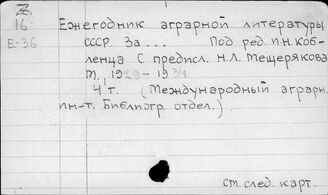 16
Е-36
Ежегодник аграрной литературы
СССР. За ... Под ред. и.н. Коб-
ленца С предисл. Н.Л. Мещерякова
М. 1929-1934
4 т. (Международный аграрн.
ин-т. Библиогр. отдел.)
см. след. карт.